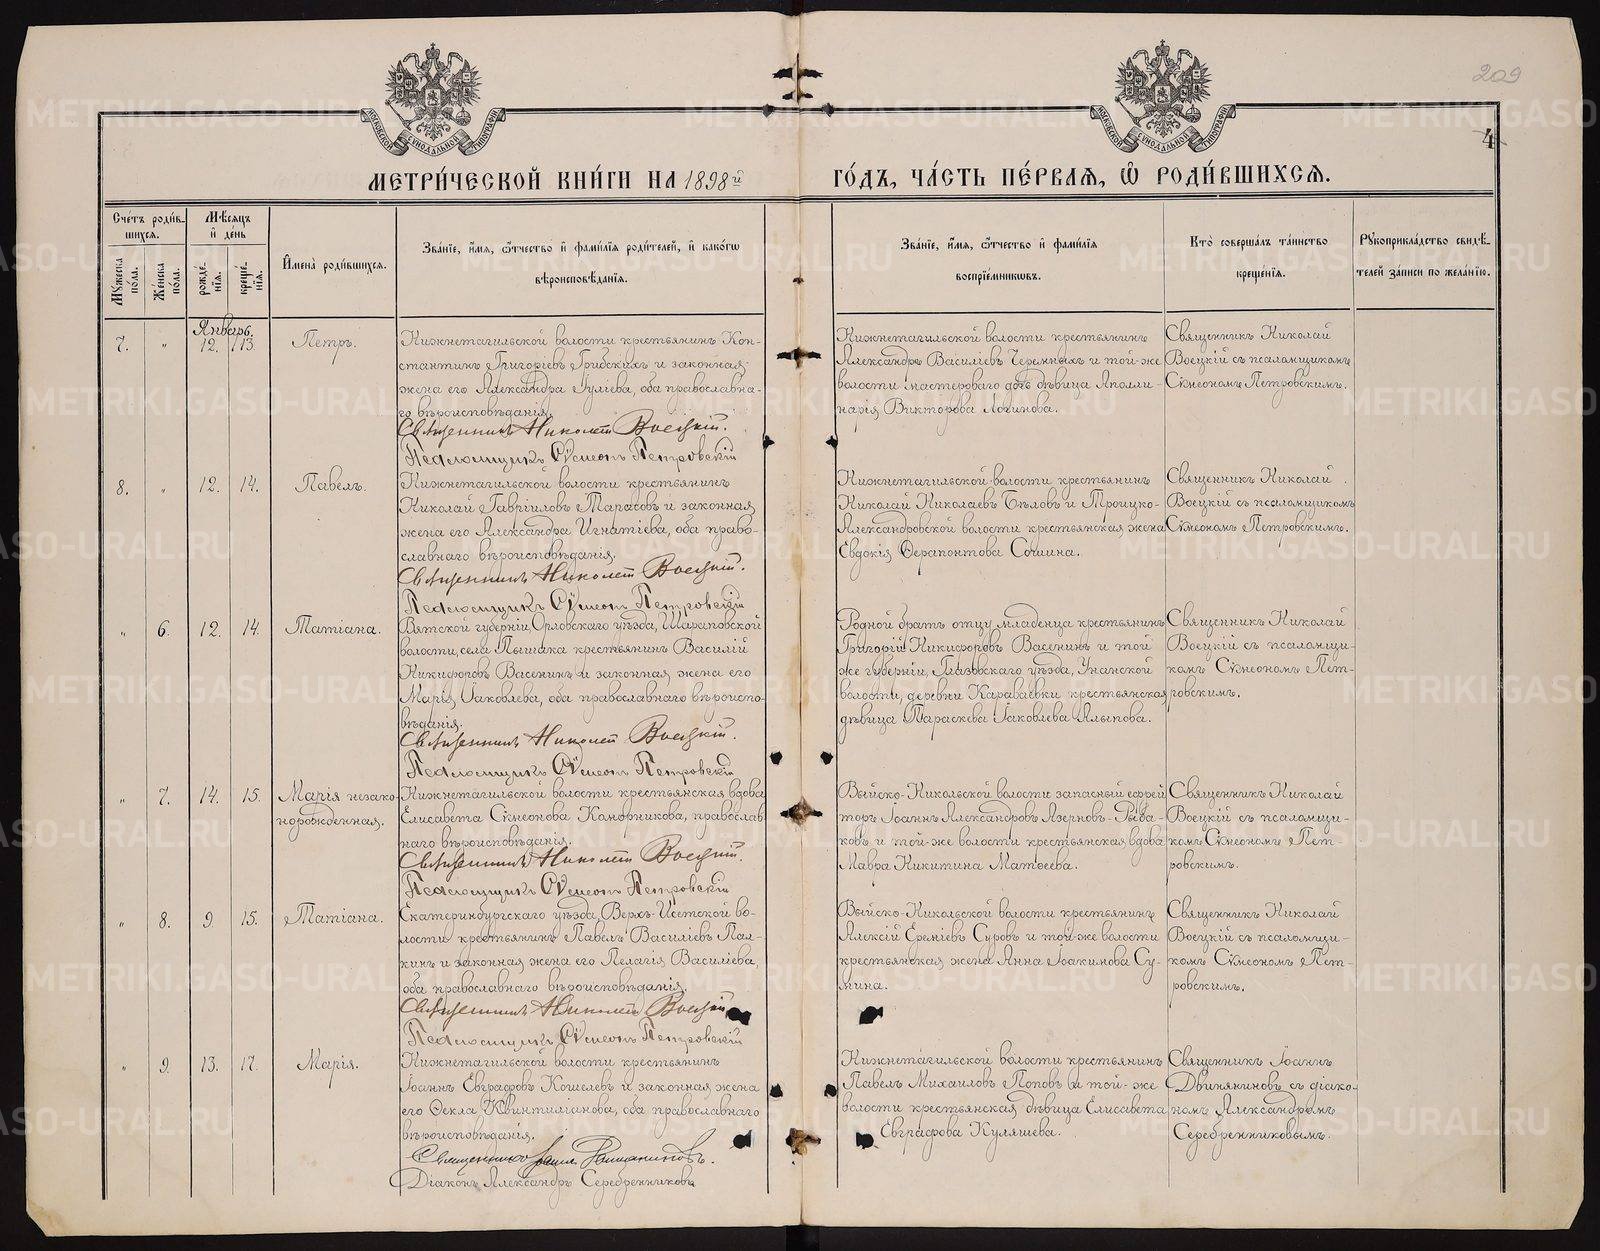 209
4
МОСКОВСКОЙ СѴНОДАЛЬНОЙ ТИПОГРАФІИ
МОСКОВСКОЙ СѴНОДАЛЬНОЙ ТИПОГРАФІИ
МЕТРИ́ЧЕСКОЙ КНИ́ГИ НА 1898й
ГО́ДЪ, ЧА́СТЬ ПЕ́РВАЯ, Ѡ҆ РОДИ́ВШИХСѦ.
Сче́тъ роди́в-
шихся.
Му́жеска по́ла.
Же́нска по́ла.
Мѣ́сяцъ
и҆ де́нь
рожде́-
нїя.
креще́-
нїя.
И҆мена̀ роди́вшихся.
Зва́нїе, и҆́мя, ѻ҆́тчество и҆ фами́лїя роди́телей, и҆ како́гѡ
вѣроисповѣ́данїя.
Зва́нїе, и҆́мя, ѻ҆́тчество и҆ фами́лїя
воспрїе́мникѡвъ.
Кто̀ соверша́лъ та́инство
креще́нїя.
Рꙋкоприкла́дство свидѣ́-
телей за́писи по жела́нїю.
Январь.
7.
"
12.
13.
Петръ.
Нижнетагильской волости крестьянинъ Кон-
стантинъ Григоріевъ Грибскихъ и законная
жена его Александра Гуліева, оба православна-
го вѣроисповѣданія.
Священникъ Николай Воецкій.
Псаломщикъ Сѵмеонъ Петровскій
Нижнетагильской волости крестьянинъ
Александръ Василіевъ Черемныхъ и той-же
волости мастероваго дочь дѣвица Аполли-
нарія Викторова Логинова.
Священникъ Николай
Воецкій съ псаломщикомъ
Сѵмеономъ Петровскимъ.
8.
"
12.
14.
Павелъ.
Нижнетагильской волости крестьянинъ
Николай Гавріиловъ Тарасовъ и законная
жена его Александра Игнатіева, оба право-
славнаго вѣроисповѣданія.
Священникъ Николай Воецкій.
Псаломщикъ Сѵмеонъ Петровскій
Нижнетагильской волости крестьянинъ
Николай Николаевъ Бѣловъ и Троицко-
Александровской волости крестьянская жена
Евдокія Ферапонтова Сошина.
Священникъ Николай
Воецкій съ псаломщикомъ
Сѵмеономъ Петровскимъ.
"
6.
12.
14.
Татіана.
Вятской губерніи, Орловскаго уѣзда, Шараповской
волости, села Пышака крестьянинъ Василій
Никифоровъ Васенинъ и законная жена его
Марія Іаковлева, оба православнаго вѣроиспо-
вѣданія.
Священникъ Николай Воецкій.
Псаломщикъ Сѵмеонъ Петровскій
Родной братъ отцу младенца крестьянинъ
Григорій Никифоровъ Васенинъ и той
же губерніи, Глазовскаго уѣзда, Унинской
волости, деревни Караваевки крестьянская
дѣвица Параскева Іаковлева Ялыпова.
Священникъ Николай
Воецкій съ псаломщи-
комъ Сѵмеономъ Пет-
ровскимъ.
"
7.
14.
15.
Марія незако-
норожденная.
Нижнетагильской волости крестьянская вдова
Елисавета Сѵмеонова Коновникова, православ-
наго вѣроисповѣданія.
Священникъ Николай Воецкій.
Псаломщикъ Сѵмеонъ Петровскій
Выйско-Никольской волости запасный ефрей-
торъ Іоаннъ Александровъ Язерновъ-Рыба-
ковъ и той-же волости крестьянская вдова
Мавра Никитина Матѳеева.
Священникъ Николай
Воецкій съ псаломщи-
комъ Сѵмеономъ Пет-
ровскимъ.
"
8.
9
15.
Татіана.
Екатеринбургскаго уѣзда, Верхъ-Исетской во-
лости крестьянинъ Павелъ Василіевъ Пал-
кинъ и законная жена его Пелагія Василіева,
оба православнаго вѣроисповѣданія.
Священникъ Николай Воецкій
Псаломщикъ Сѵмеонъ Петровскій
Выйско-Никольской волости крестьянинъ
Алексій Ереміевъ Суровъ и той-же волости
крестьянская жена Анна Іоакимова Су-
мина.
Священникъ Николай
Воецкій съ псаломщи-
комъ Сѵмеономъ Пет-
ровскимъ.
"
9.
13.
17.
Марія.
Нижнетагильской волости крестьянинъ
Іоаннъ Евграфовъ Кошелевъ и законная жена
его Ѳекла Квинтиліанова, оба православнаго
вѣроисповѣданія.
Священникъ Іоаннъ Двиняниновъ.
Діаконъ Александръ Серебренниковъ
Нижнетагильской волости крестьянинъ
Павелъ Михаиловъ Поповъ и той-же
волости крестьянская дѣвица Елисавета
Евграфова Куляшева.
Священникъ Іоаннъ
Двиняниновъ съ діако-
номъ Александромъ
Серебренниковымъ.
METRIKI.GASO-URAL.RU